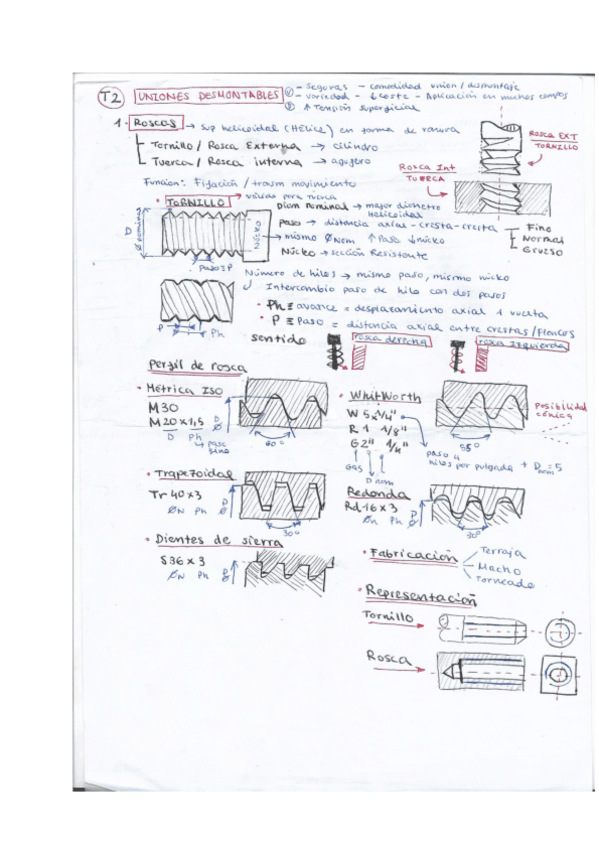 T2 UNIONES DESMONTABLES
- Seguras - comodidad union / desmontaje
- variedad - ↓ coste - Aplicación en muchos campos
↑ Tensión superficial
1. Roscas → sup helicoidal (Hélice) en forma de ranura
Tornillo / Rosca Externa → cilindro
Tuerca / Rosca interna → agujero
Rosca EXT
TORNILLO
Rosca Int
TUERCA
Funcion: Fijación / trasm movimiento
• TORNILLO → válido para tuerca
Diam nominal → mayor diametro
Helicoidal
Paso → distancia axial - cresta - cresta
Fino
Normal
Grueso
→ mismo ØNom ↑ Paso ↓ núcleo
Núcleo → sección Resistente
D
Ø nominal
NÚCLEO
Paso=P
Número de hilos → mismo paso, mismo núcleo
Intercambio paso de hilo con dos pasos
• Ph ≡ avance = desplazamiento axial 1 vuelta
• P ≡ Paso = distancia axial entre crestas/flancos
P Ph
sentido rosca derecha rosca Izquierda
Perfil de rosca
• Métrica ISO
M30
M20 x 1,5
D Ph
→ paso
fino
D
60°
• WhitWorth
W 5 x 1/4"
R 1 1/8"
G 2" 1/4"
GAS D nom
paso 4
hilos por pulgada + Dnom = 5
55°
Posibilidad
cónica
• Trapezoidal
Tr 40 x 3
ØN Ph
D
30°
Redonda
Rd 16 x 3
Øn Ph
D
30°
• Dientes de sierra
S36 x 3
ØN Ph
D
• Fabricación
Terraja
Macho
Torneado
• Representación
Tornillo
Rosca